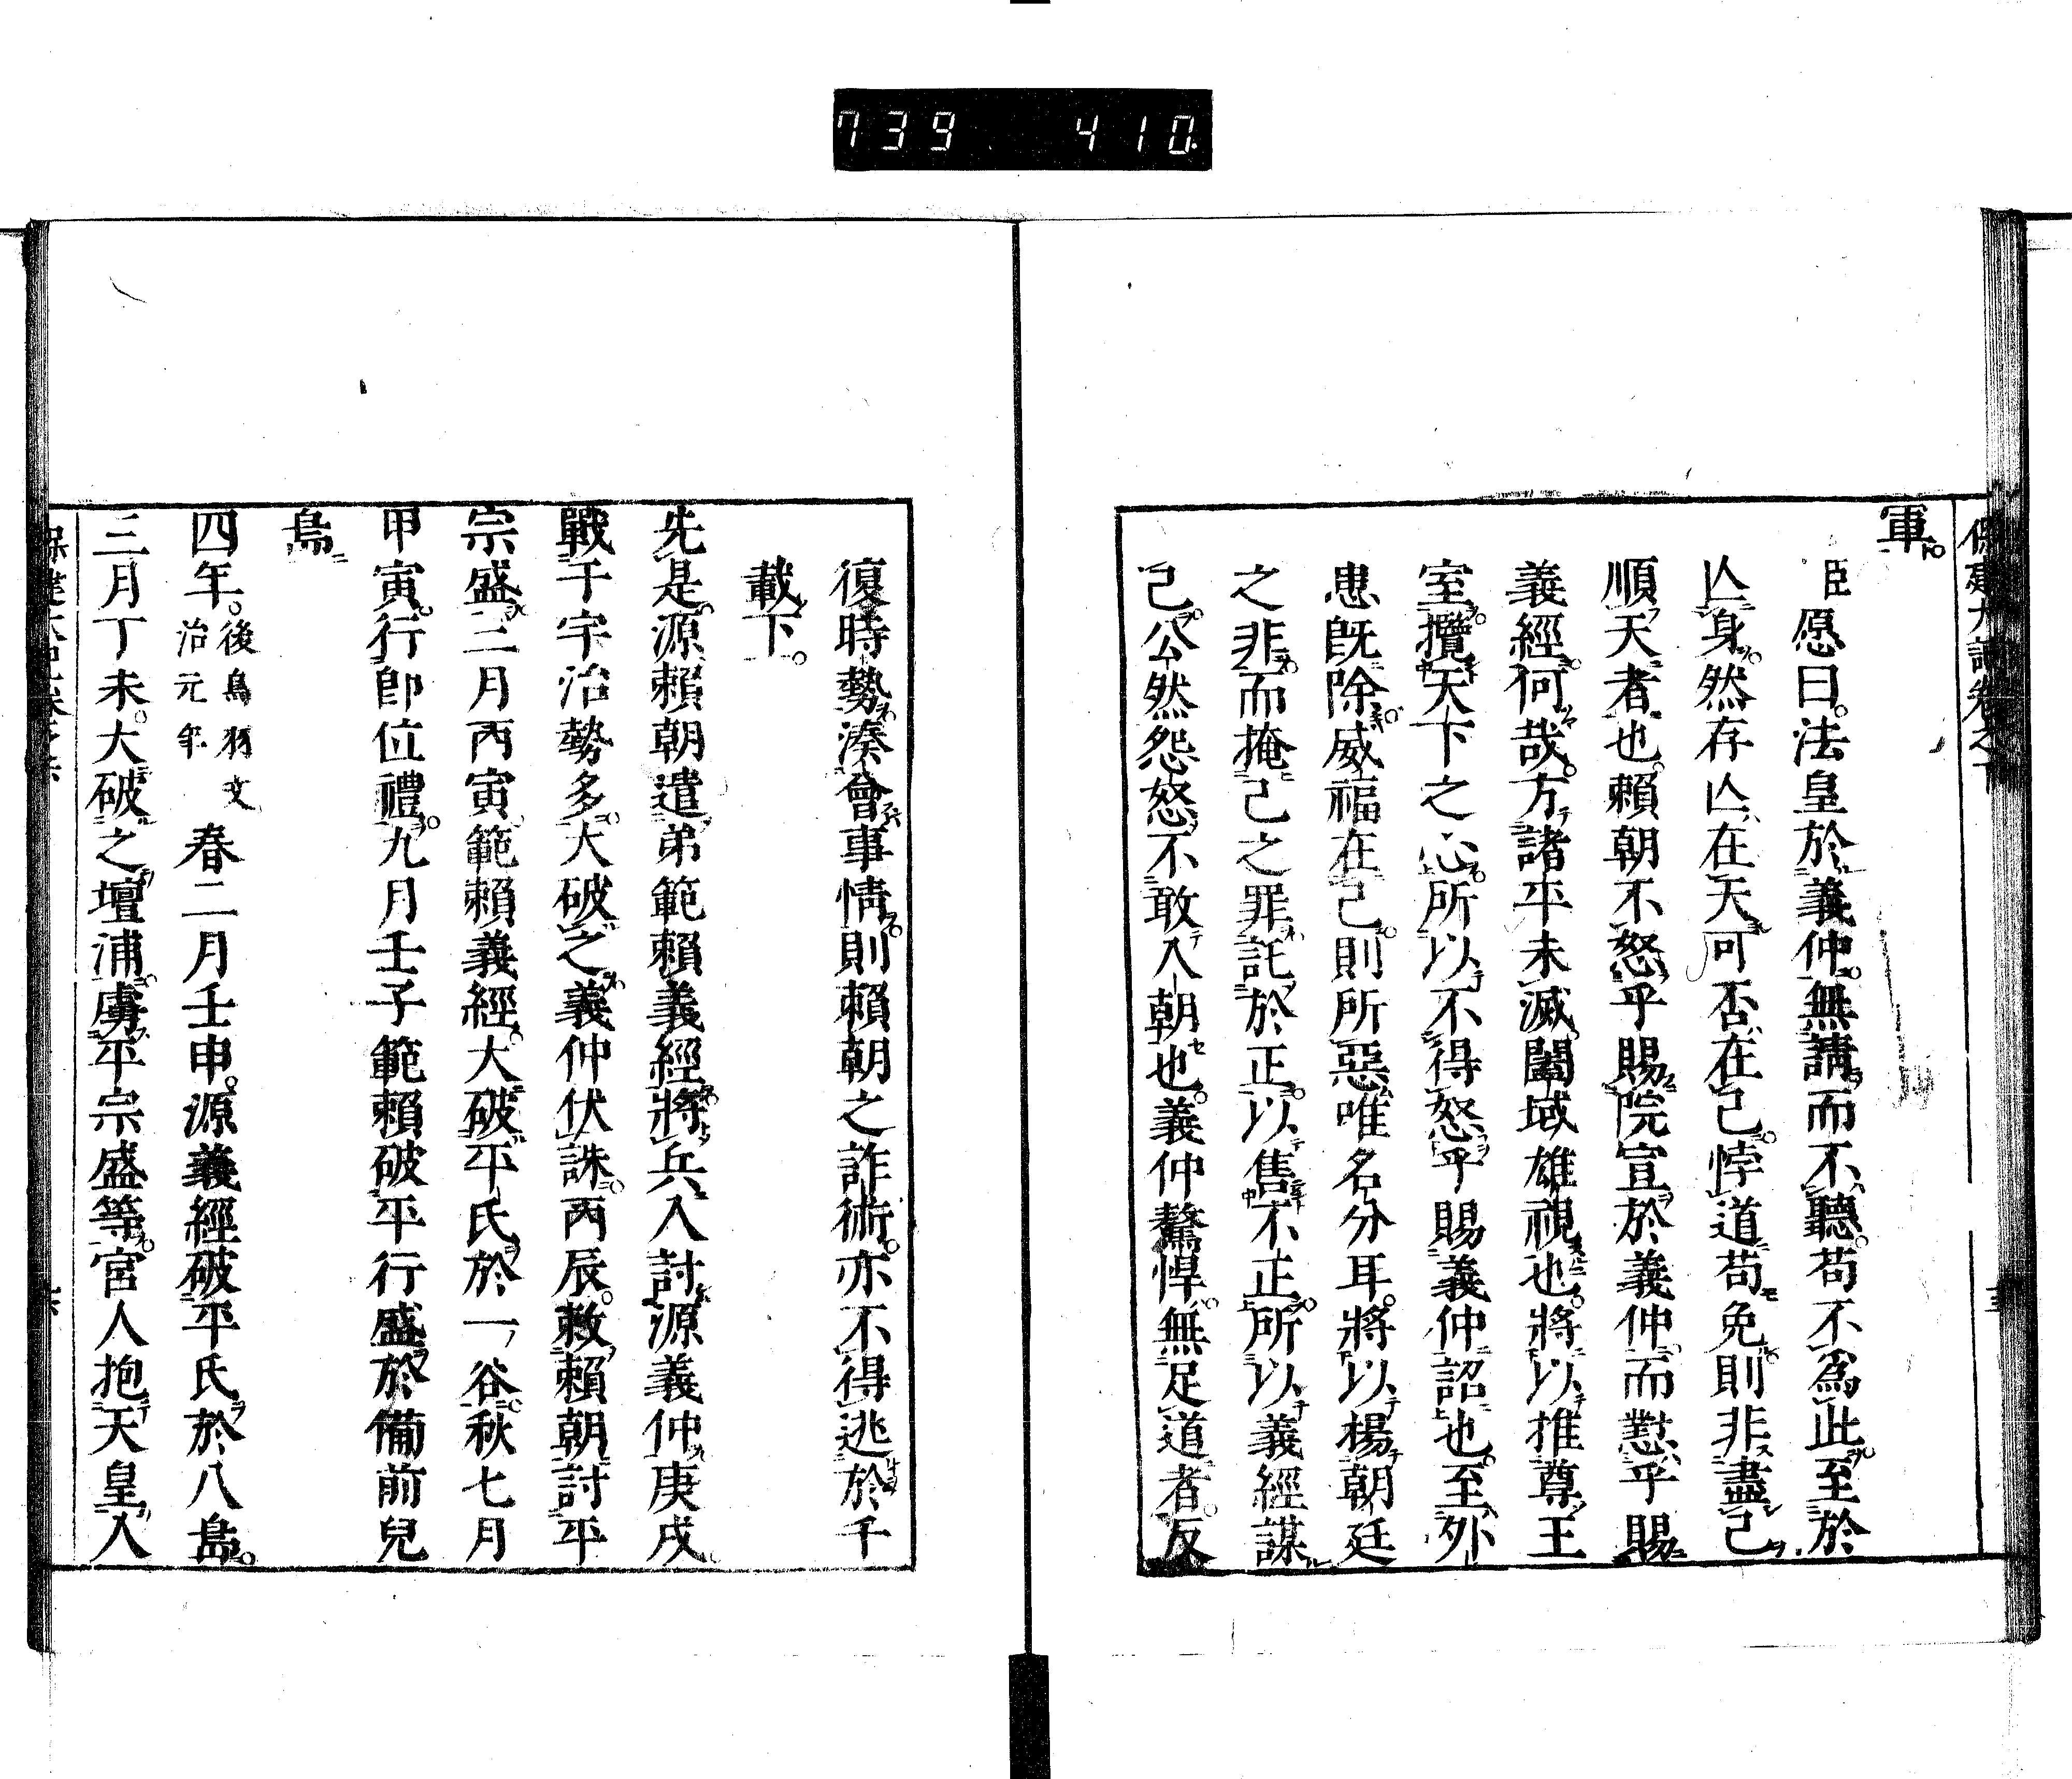 739 410
保建大記卷之下
軍
臣愿曰。法皇於義仲。無請而不聽。苟不爲此。至於
亾身。然存亾在天。可否在己。悖道苟免。則非盡己
順天者也。賴朝不怒乎賜院宣於義仲。而懟乎賜
義經何哉。方諸平未滅。闔域雄視也。將以推尊王
室。攬天下之心。所以不得怒乎賜義仲詔也。至外
患旣除。威福在己。則所惡唯名分耳。將以楊朝廷
之非。而掩己之罪。託於正。以售不正。所以義經謀
己。公然怨怒。不敢入朝也。義仲驁悍。無足道者。反
復時勢。湊會事情。則賴朝之詐術。亦不得逃於千
載下。
先是。源賴朝遣弟範賴義經。將兵入討源義仲。庚戌
戰于宇治勢多。大破之。義仲伏誅。丙辰。敕賴朝討平
宗盛。二月丙寅。範賴義經。大破平氏於一谷。秋七月
甲寅。行卽位禮。九月壬子範賴破平行盛於備前兒
島
四年。後鳥羽文治元年 春二月壬申。源義經破平氏於八島。
三月丁未。大破之壇浦。虜平宗盛等。宮人抱天皇入